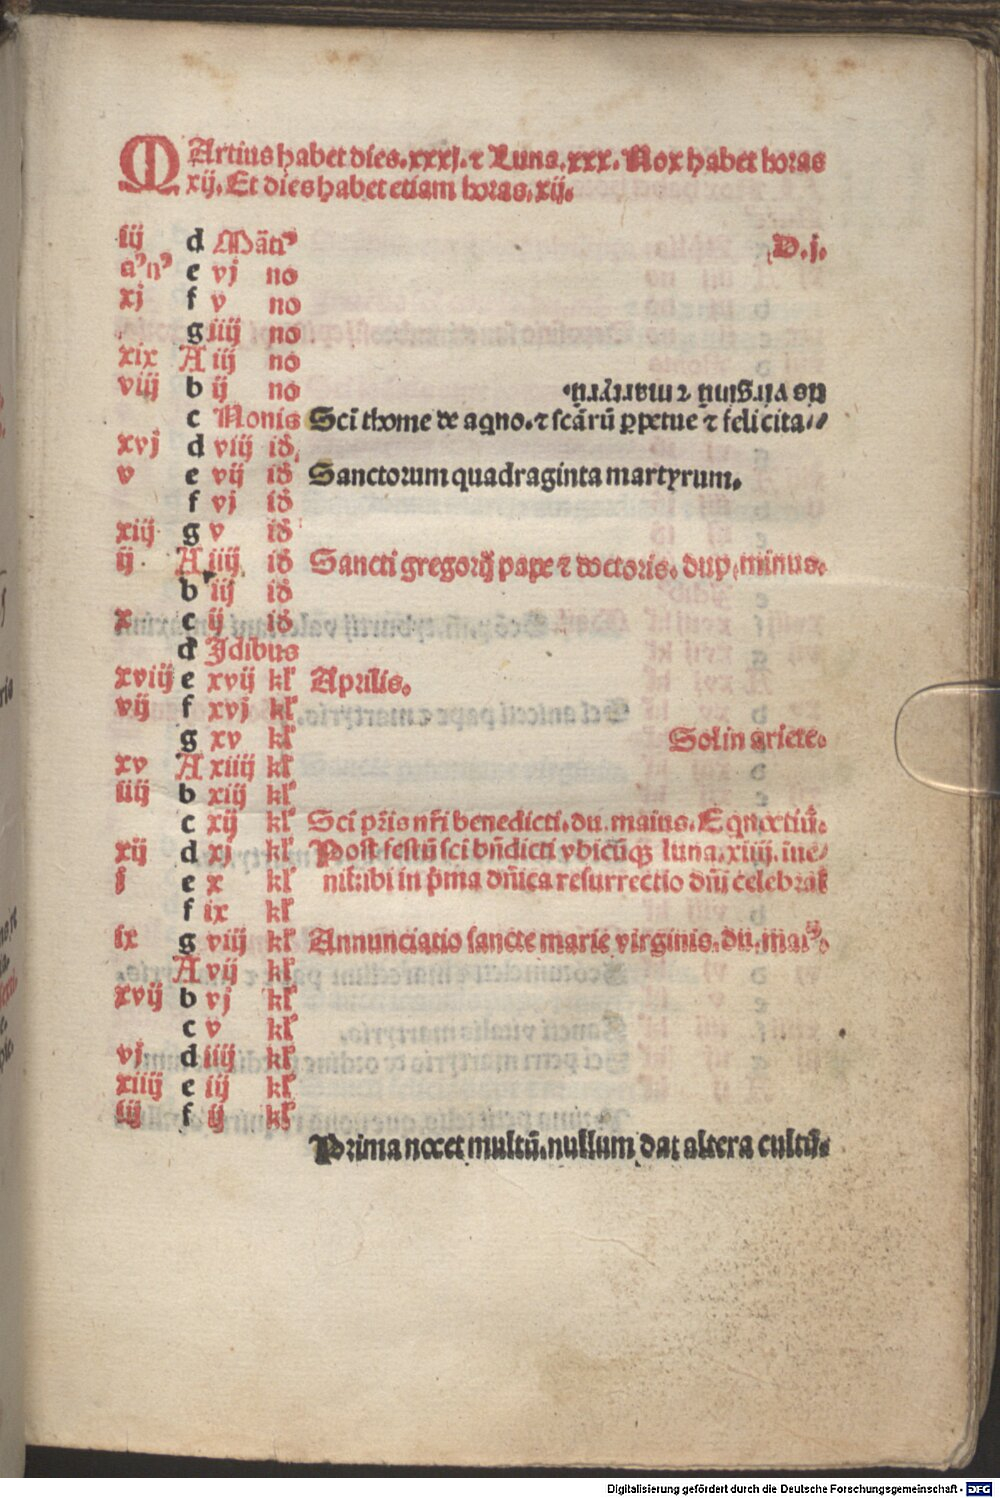 MArtius habet dies.xxxj.⁊ Luna.xxx. Nox habet horas
xij. Et dies habet etiam horas.xij.
iij d Mãtiꝰ D.j.
aꝰnꝰ e vj no
xj f v no
g iiij no
xix A iij no
viij b ij no
us virginũ ⁊ martyrũ.
c Nonis Scĩ thome de aqno.⁊ scãrũ ꝑpetue ⁊ felicita//
xvj d viij id̃
v e vij id̃ Sanctorum quadraginta martyrum.
f vj id̃
xiij g v id̃
ij A iiij id̃ Sancti gregorij pape ⁊ doctoris. dup. minus.
b iij id̃
x c ij id̃
d Idibus
xviij e xvij kl̃ Aprilis.
vij f xvj kl̃
g xv kl̃ Sol in ariete.
xv A xiiij kl̃
iiij b xiij kl̃
c xij kl̃ Scĩ pr̃is nr̃i benedicti. du. maius. Eqnoctiũ.
xij d xj kl̃ Post festũ sci bñdicti vbicũqꝫ luna.xiiij.iue/
j e x kl̃ nit̃:ibi in p̃ma dñica resurrectio dñi celebrat̃
f ix kl̃
ix g viij kl̃ Annunciatio sancte marie virginis. du. maiꝰ.
A vij kl̃
xvij b vj kl̃
c v kl̃
vj d iiij kl̃
xiiij e iij kl̃
iij f ij kl̃
Prima nocet multũ.nullum dat altera cultũ.
Digitalisierung gefördert durch die Deutsche Forschungsgemeinschaft - DFG